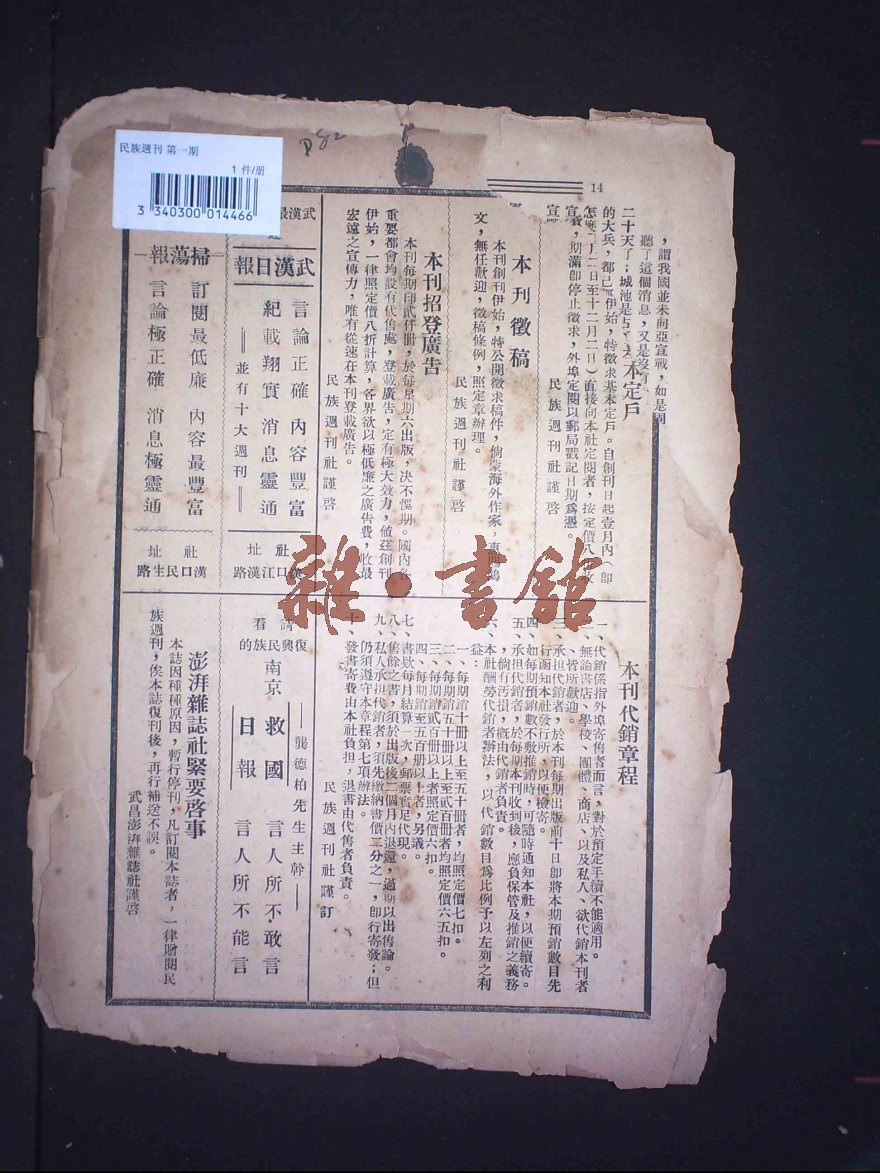 民族週刊 第一期
1 件/册
3 340300 014466
14
，謂我國並未向亞宣戰，如是周
聽了這個消息，又是沒有
二十天了；城池是占
的大兵，都己
怎麼
本定戶
伊始，特徵求基本定戶。自創刊日起壹月內（即
月二日至十二月二日）直接向本社定閱者，按定價八
，期滿即停止徵求，外埠定閱以郵局戳記日期爲憑。
民族週刊社謹啓
本刊徵稿
本刊創刊伊始，特公開徵求稿件，倘蒙海外作家，惠
文，無任歡迎，徵稿條例，照定章辦理。
民族週刊社謹啓
本刊招登廣告
本刊每期印貳仟册，於每星期六出版，决不悞期。國內各
重要都會均設有代售處，登載廣告，定有極大效力，値茲創刊
伊始，一律照定價八折計算，各界欲以極低廉之廣告費，收最
宏遠之宣傳力，唯有從速在本刊登載廣告。
民族週刊社謹啓
武漢
武漢日報
言論正確 內容豐富
紀載翔實 消息靈通
——並有十大週刊——
社址
漢口江漢路
掃蕩報
訂閱最低廉 內容最豐富
言論極正確 消息極靈通
社址
漢口民生路
本刊代銷章程
一、代銷係指外埠寄售者而言，對於預定手續不能適用。
二、無論書店、學校、團體、商店、以及私人、欲代銷本刊者
、皆所歡迎。
三、承担代銷者，於本刊每期出版前十日即將本期預銷數目先
行函知本社發行所，以便檢寄。
四、如每期預銷數不敷推銷時，可隨時通知本社，以便續寄。
五、承担代銷者，於每期本刊收到後，應負保管及推銷之義務
，倘有汚損，概由代銷者負責。
六、本社酬勞代銷者辦法，以代銷數目爲比例予以左列之利
益：
一、每期銷十册以上至五十册者，均照定價七扣。
二、每期銷五十册以上至貳百册者均照定價六五扣。
三、每期銷貳百册以上者照定價六扣。
四、每期銷至五百册以上者，另議。
七、書欵每月結算一次，郵票實足代現。
八、售餘之書，須於出版後二個月內退還，過期以出售論。
九、私人承担代銷者，須先繳納書價二分之一，即行寄發；但
仍須遵守本章程第七項辦法。
十、發書寄費由本社負担，退書由代售者負責。
民族週刊社謹訂
請看
復興民族的
南京
救國日報
——龔德柏先生主幹——
言人所不敢言
言人所不能言
澎湃雜誌社緊要啓事
本誌因種種原因，暫行停刊，凡訂閱本誌者，一律贈閱民
族週刊，俟本誌復刊後，再行補送不誤。
武昌澎湃雜誌社謹啓
雜·書館